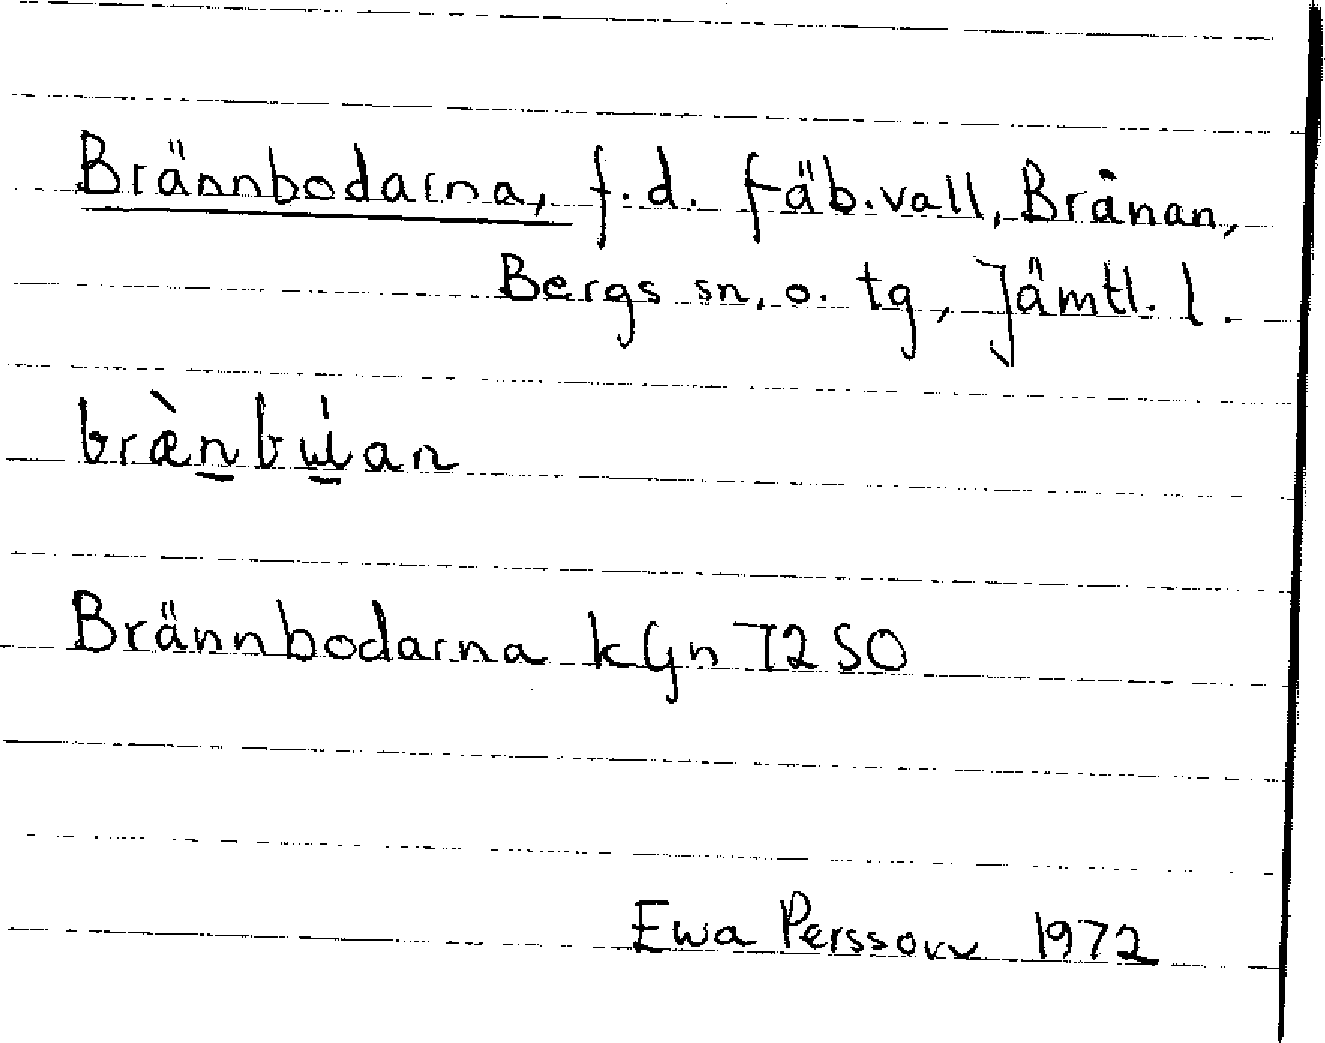 Brännbodarna, f.d. fäb.vall, Brånan,
Bergs sn. o. tg, Jämtl. l.
Brännbodarna kGn T2 SO
Ewa Persson 1972